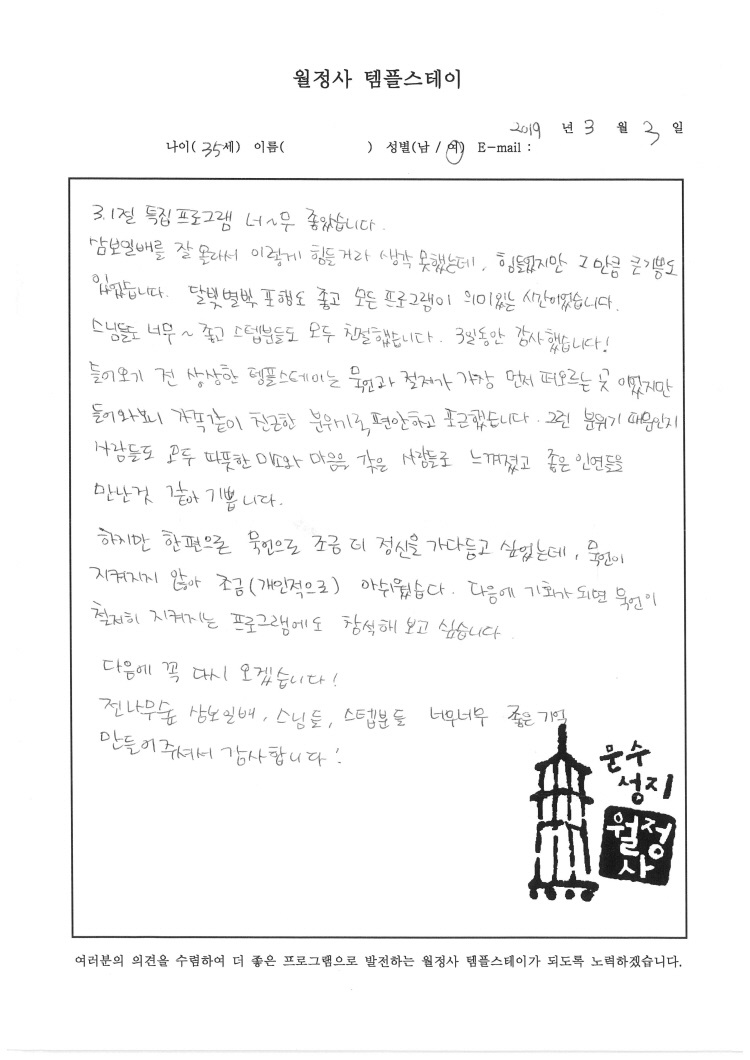 월정사 템플스테이
2019 년 3 월 3 일
나이( 35세) 이름( ) 성별(남 / 여) E-mail :
3.1절 특집프로그램 너~무 좋았습니다.
삼보일배를 잘 몰라서 이렇게 힘들거라 생각 못했는데, 힘들었지만 그만큼 큰 기쁨도
있었습니다. 달빛별빛 포행도 좋고 모든 프로그램이 의미있는 시간이었습니다.
스님들도 너무~ 좋고 스텝분들도 모두 친절했습니다. 3일동안 감사했습니다!
들어오기 전 상상한 템플스테이는 묵언과 절제가 가장 먼저 떠오르는 곳 이었지만
들어와보니 가족같이 친근한 분위기로 편안하고 포근했습니다. 그런 분위기 때문인지
사람들도 모두 따뜻한 미소와 마음을 갖은 사람들로 느껴졌고 좋은 인연들을
만난것 같아 기쁩니다.
하지만 한편으론 묵언으로 조금 더 정신을 가다듬고 싶었는데, 묵언이
지켜지지 않아 조금(개인적으로) 아쉬웠습다. 다음에 기회가 되면 묵언이
철저히 지켜지는 프로그램에도 참석해 보고 싶습니다.
다음에 꼭 다시 오겠습니다!
전나무숲 삼보일배, 스님들, 스텝분들 너무너무 좋은기억
만들어주셔서 감사합니다!
문수
성지
월정
사
여러분의 의견을 수렴하여 더 좋은 프로그램으로 발전하는 월정사 템플스테이가 되도록 노력하겠습니다.